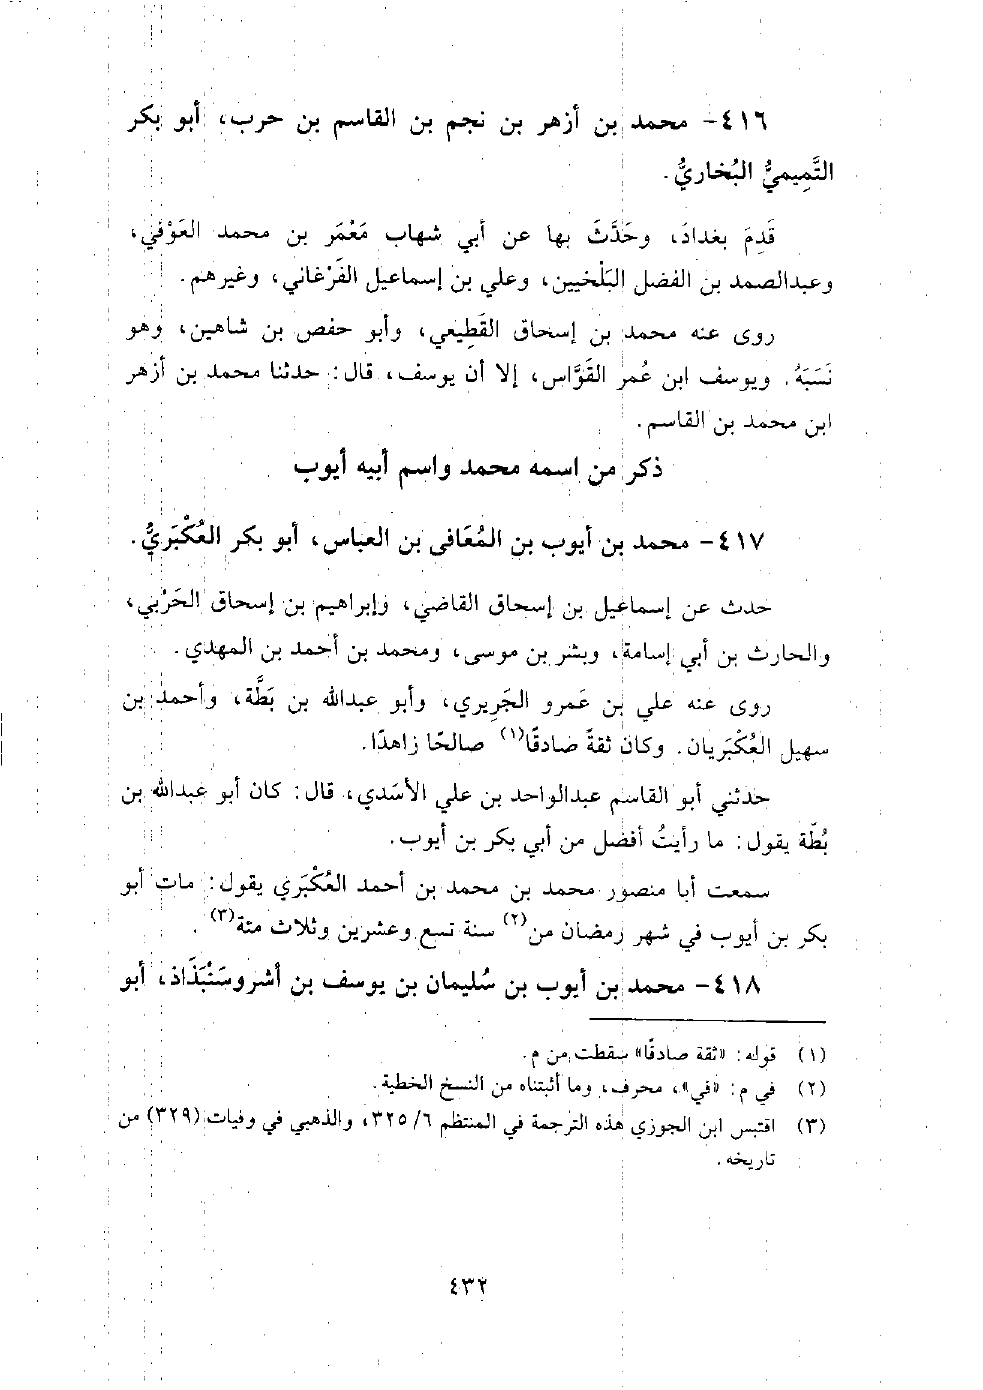 ٤١٦- محمد بن أزهر بن نجم بن القاسم بن حرب، أبو بكر
التَّمِيميُّ البُخاريُّ.
قَدِمَ بغدادَ، وحَدَّثَ بها عن أبي شهاب مَعْمَر بن محمد العَوْفي،
وعبدالصمد بن الفضل البَلْخيين، وعلي بن إسماعيل الفَرْغاني، وغيرهم.
روى عنه محمد بن إسحاق القَطِيعي، وأبو حفص بن شاهين، وهو
نَسَبَهُ. ويوسف ابن عُمر القَوَّاس، إلا أن يوسف، قال: حدثنا محمد بن أزهر
ابن محمد بن القاسم.
ذكر من اسمه محمد واسم أبيه أيوب
٤١٧- محمد بن أيوب بن المُعَافى بن العباس، أبو بكر العُكْبَريُّ.
حدث عن إسماعيل بن إسحاق القاضي، وإبراهيم بن إسحاق الحَرْبي،
والحارث بن أبي إسامة، وبشر بن موسى، ومحمد بن أحمد بن المهدي.
روى عنه علي بن عَمرو الجَريري، وأبو عبدالله بن بَطَّة، وأحمد بن
سهيل العُكْبَريان. وكان ثقةً صادقًا(١) صالحًا زاهدًا.
حدثني أبو القاسم عبدالواحد بن علي الأسَدي، قال: كان أبو عبدالله بن
بُطَّة يقول: ما رأيتُ أفضل من أبي بكر بن أيوب.
سمعت أبا منصور محمد بن محمد بن أحمد العُكْبَري يقول: مات أبو
بكر بن أيوب في شهر رمضان من(٢) سنة تسع وعشرين وثلاث مئة(٣).
٤١٨- محمد بن أيوب بن سُليمان بن يوسف بن أشروسَنْبَذَاذ، أبو
(١) قوله: «ثقة صادقًا» سقطت من م.
(٢) في م: «في»، محرف، وما أثبتناه من النسخ الخطية.
(٣) اقتبس ابن الجوزي هذه الترجمة في المنتظم ٦/ ٣٢٥، والذهبي في وفيات (٣٢٩) من
تاريخه.
٤٣٢